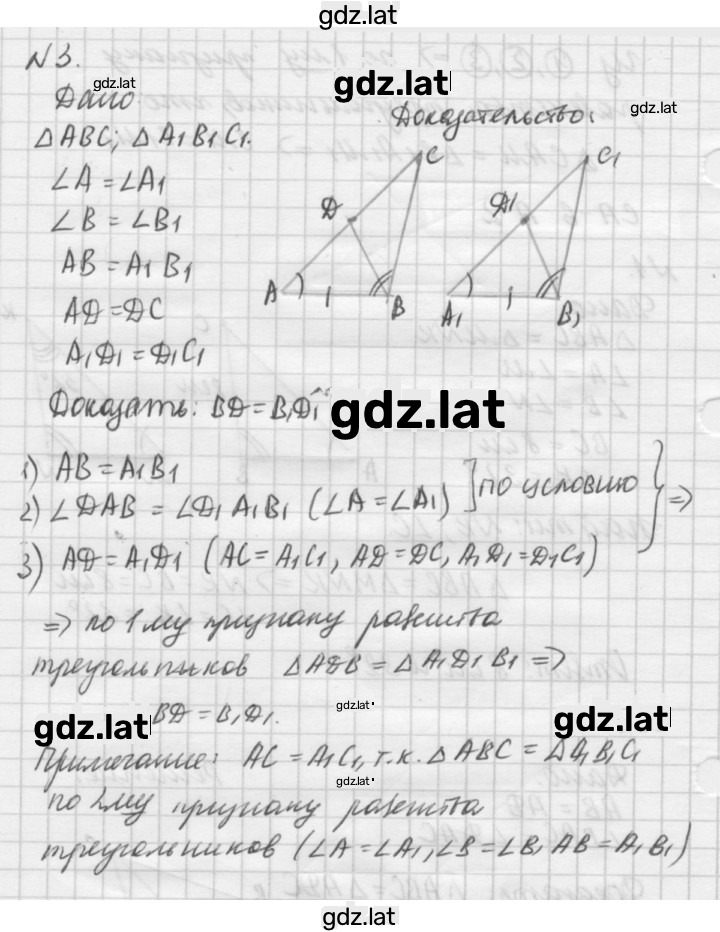 gdz.lat
N 3.
gdz.lat
gdz.lat
Дано:
gdz.lat
Доказательство:
△ABC; △A₁B₁C₁.
∠A = ∠A₁
∠B = ∠B₁
AB = A₁B₁
AD = DC
A₁D₁ = D₁C₁
C
D
A
B
C₁
D₁
A₁
B₁
Доказать: BD = B₁D₁
gdz.lat
1) AB = A₁B₁
2) ∠DAB = ∠D₁A₁B₁ (∠A = ∠A₁) ] по условию } =>
3) AD = A₁D₁ (AC = A₁C₁, AD = DC, A₁D₁ = D₁C₁)
=> по 1му признаку равенства
треугольников △ADB = △A₁D₁B₁ =>
gdz.lat
BD = B₁D₁.
gdz.lat
gdz.lat
Примечание: AC = A₁C₁, т.к. △ABC = △A₁B₁C₁
gdz.lat
по 2му признаку равенства
треугольников (∠A = ∠A₁, ∠B = ∠B₁ AB = A₁B₁)
gdz.lat